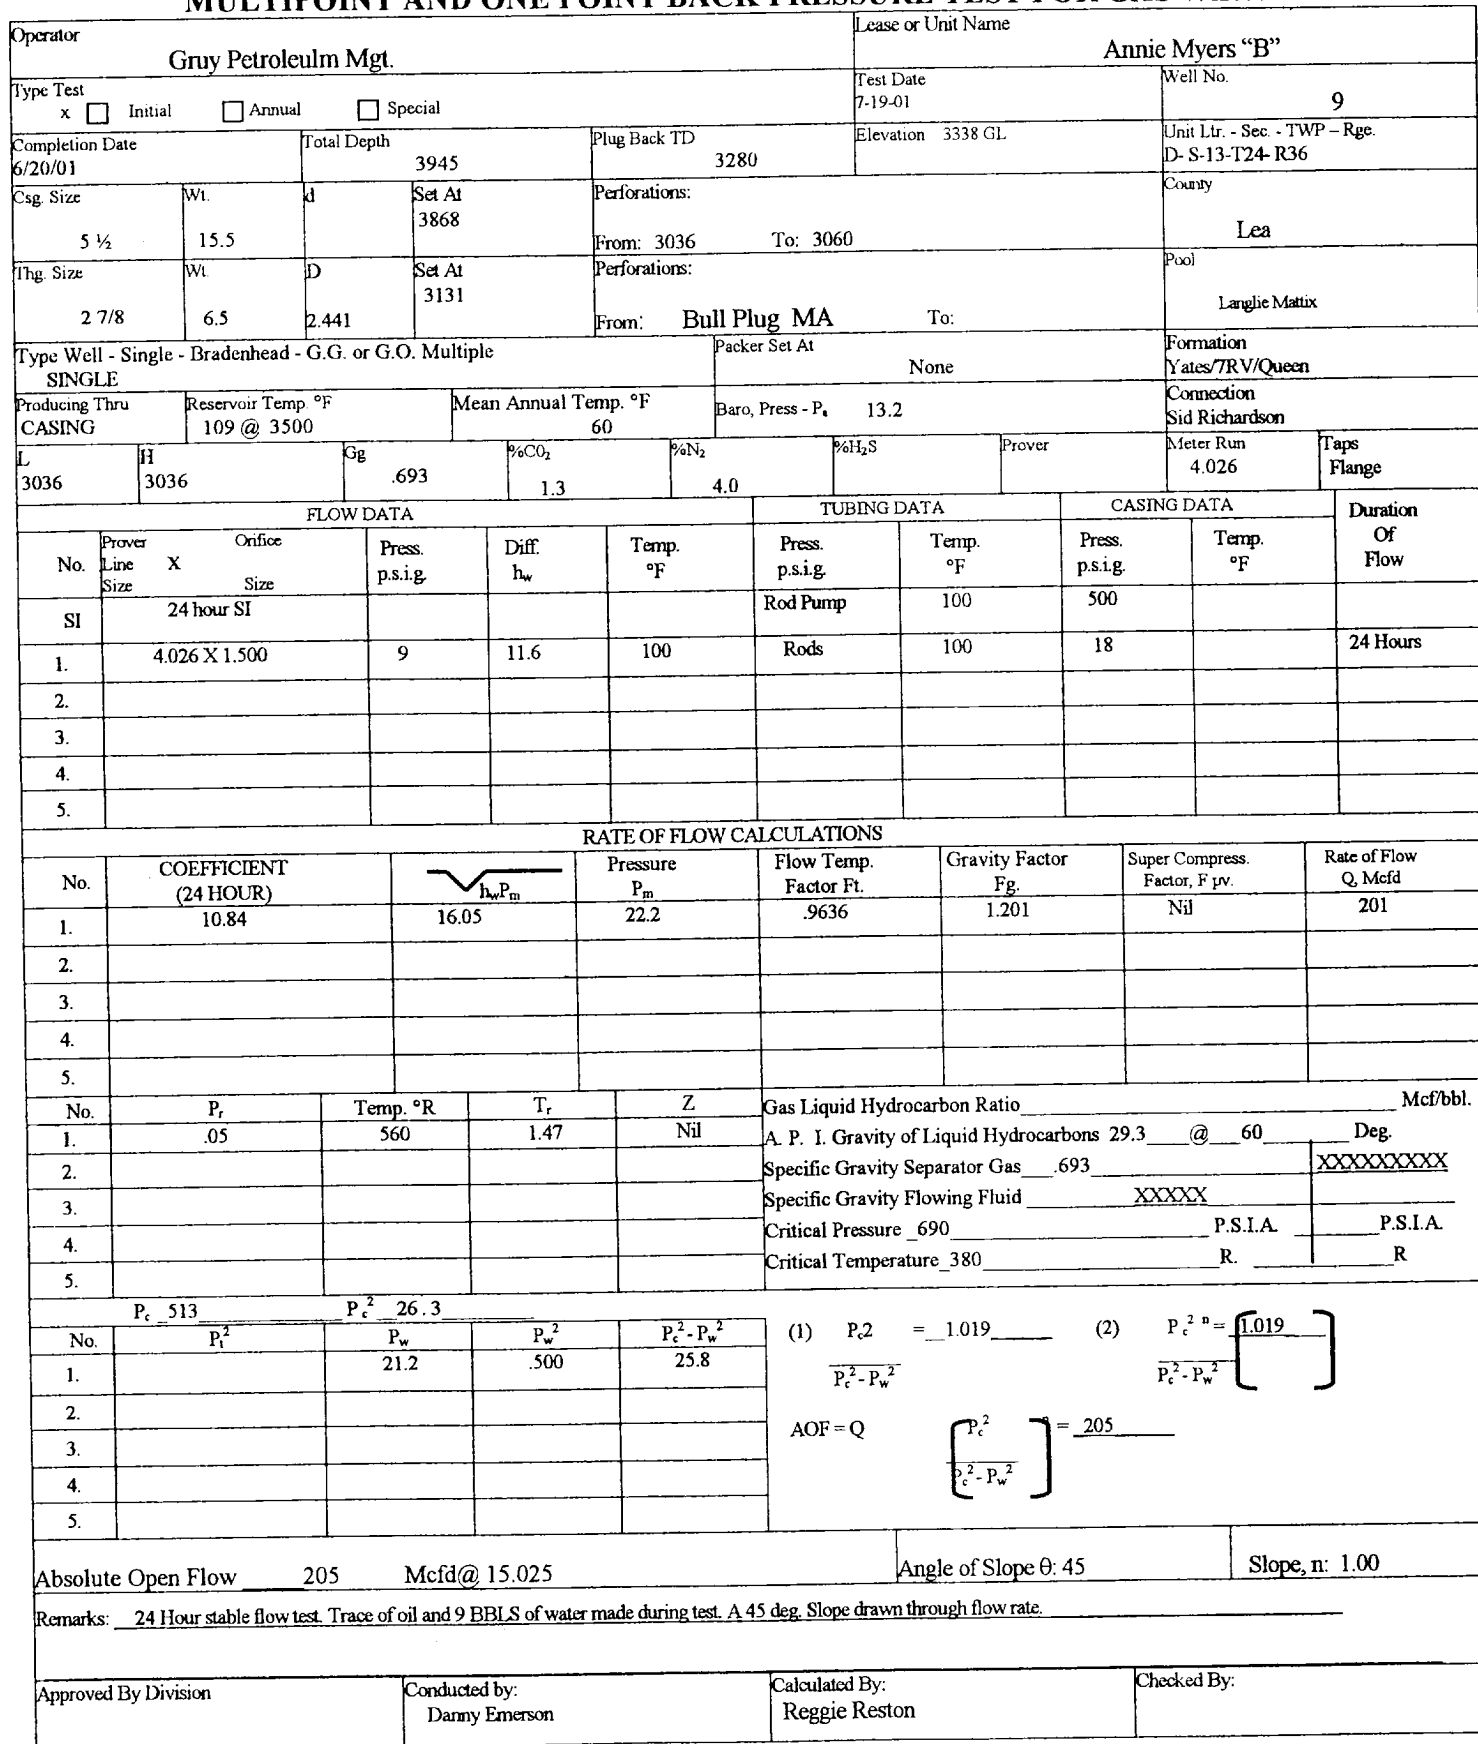 MULTIPOINT AND ONE POINT BACK PRESSURE TEST FOR GAS
Operator
Gruy Petroleulm Mgt.
Lease or Unit Name
Annie Myers “B”
Type Test
x Initial Annual Special
Test Date
7-19-01
Well No.
9
Completion Date
6/20/01
Total Depth
3945
Plug Back TD
3280
Elevation 3338 GL
Unit Ltr. - Sec. - TWP – Rge.
D- S-13-T24- R36
Csg. Size
5 ½
Wt.
15.5
d
Set At
3868
Perforations:
From: 3036 To: 3060
County
Lea
Thg. Size
2 7/8
Wt.
6.5
D
2.441
Set At
3131
Perforations:
From: Bull Plug MA To:
Pool
Langlie Mattix
Type Well - Single - Bradenhead - G.G. or G.O. Multiple
SINGLE
Packer Set At
None
Formation
Yates/7RV/Queen
Producing Thru
CASING
Reservoir Temp. °F
109 @ 3500
Mean Annual Temp. °F
60
Baro, Press - Pa 13.2
Connection
Sid Richardson
L
3036
H
3036
Gg
.693
%C0₂
1.3
%N₂
4.0
%H₂S
Prover
Meter Run
4.026
Taps
Flange
FLOW DATA
TUBING DATA
CASING DATA
Duration
Of
Flow
No.
Prover
Line X
Size
Orifice
Size
Press.
p.s.i.g.
Diff.
hw
Temp.
°F
Press.
p.s.i.g.
Temp.
°F
Press.
p.s.i.g.
Temp.
°F
SI 24 hour SI Rod Pump 100 500
1. 4.026 X 1.500 9 11.6 100 Rods 100 18 24 Hours
2.
3.
4.
5.
RATE OF FLOW CALCULATIONS
No.
COEFFICIENT
(24 HOUR)
√hwPm
Pressure
Pm
Flow Temp.
Factor Ft.
Gravity Factor
Fg.
Super Compress.
Factor, F pv.
Rate of Flow
Q, Mcfd
1. 10.84 16.05 22.2 .9636 1.201 Nil 201
2.
3.
4.
5.
No. Pr Temp. °R Tr Z
1. .05 560 1.47 Nil
2.
3.
4.
5.
Gas Liquid Hydrocarbon Ratio Mcf/bbl.
A. P. I. Gravity of Liquid Hydrocarbons 29.3 @ 60 Deg.
Specific Gravity Separator Gas .693 XXXXXXXXX
Specific Gravity Flowing Fluid XXXXX
Critical Pressure 690 P.S.I.A. P.S.I.A.
Critical Temperature 380 R. R
Pc 513 Pc² 26.3
No. Pt² Pw Pw² Pc²- Pw²
1. 21.2 .500 25.8
2.
3.
4.
5.
(1) Pc2 = 1.019 (2) Pc² ⁿ = 1.019
Pc²- Pw² Pc²- Pw²
AOF = Q Pc² ⁿ = 205
Pc²- Pw²
Absolute Open Flow 205 Mcfd@ 15.025
Angle of Slope θ: 45
Slope, n: 1.00
Remarks: 24 Hour stable flow test. Trace of oil and 9 BBLS of water made during test. A 45 deg. Slope drawn through flow rate.
Approved By Division
Conducted by:
Danny Emerson
Calculated By:
Reggie Reston
Checked By: